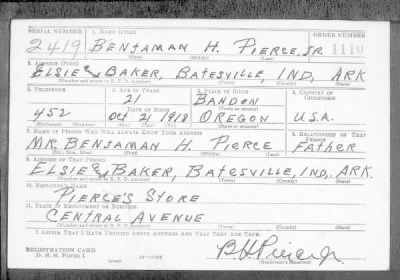 SERIAL NUMBER 1. NAME (Print) ORDER NUMBER
2419 BENJAMAN H. PIERCE, JR. 1110
(First) (Middle) (Last)
2. ADDRESS (Print)
ELSIE & BAKER, BATESVILLE, IND, ARK
(Number and street or R. F. D. number) (Town) (County) (State)
3. TELEPHONE 4. AGE IN YEARS 5. PLACE OF BIRTH 6. COUNTRY OF CITIZENSHIP
21 BANDON
DATE OF BIRTH (Town or county)
452 OCT 21 1918 OREGON U.S.A.
(Exchange) (Number) (Mo.) (Day) (Yr.) (State or country)
7. NAME OF PERSON WHO WILL ALWAYS KNOW YOUR ADDRESS 8. RELATIONSHIP OF THAT PERSON
MR. BENJAMAN H. PIERCE FATHER
(Mr., Mrs., Miss) (First) (Middle) (Last)
9. ADDRESS OF THAT PERSON
ELSIE & BAKER, BATESVILLE, IND, ARK.
(Number and street or R. F. D. number) (Town) (County) (State)
10. EMPLOYER'S NAME
PIERCE'S STORE
11. PLACE OF EMPLOYMENT OR BUSINESS
CENTRAL AVENUE
(Number and street or R. F. D. number) (Town) (County) (State)
I AFFIRM THAT I HAVE VERIFIED ABOVE ANSWERS AND THAT THEY ARE TRUE.
REGISTRATION CARD
D. S. S. Form 1 B H Pierce Jr.
(Registrant's signature)